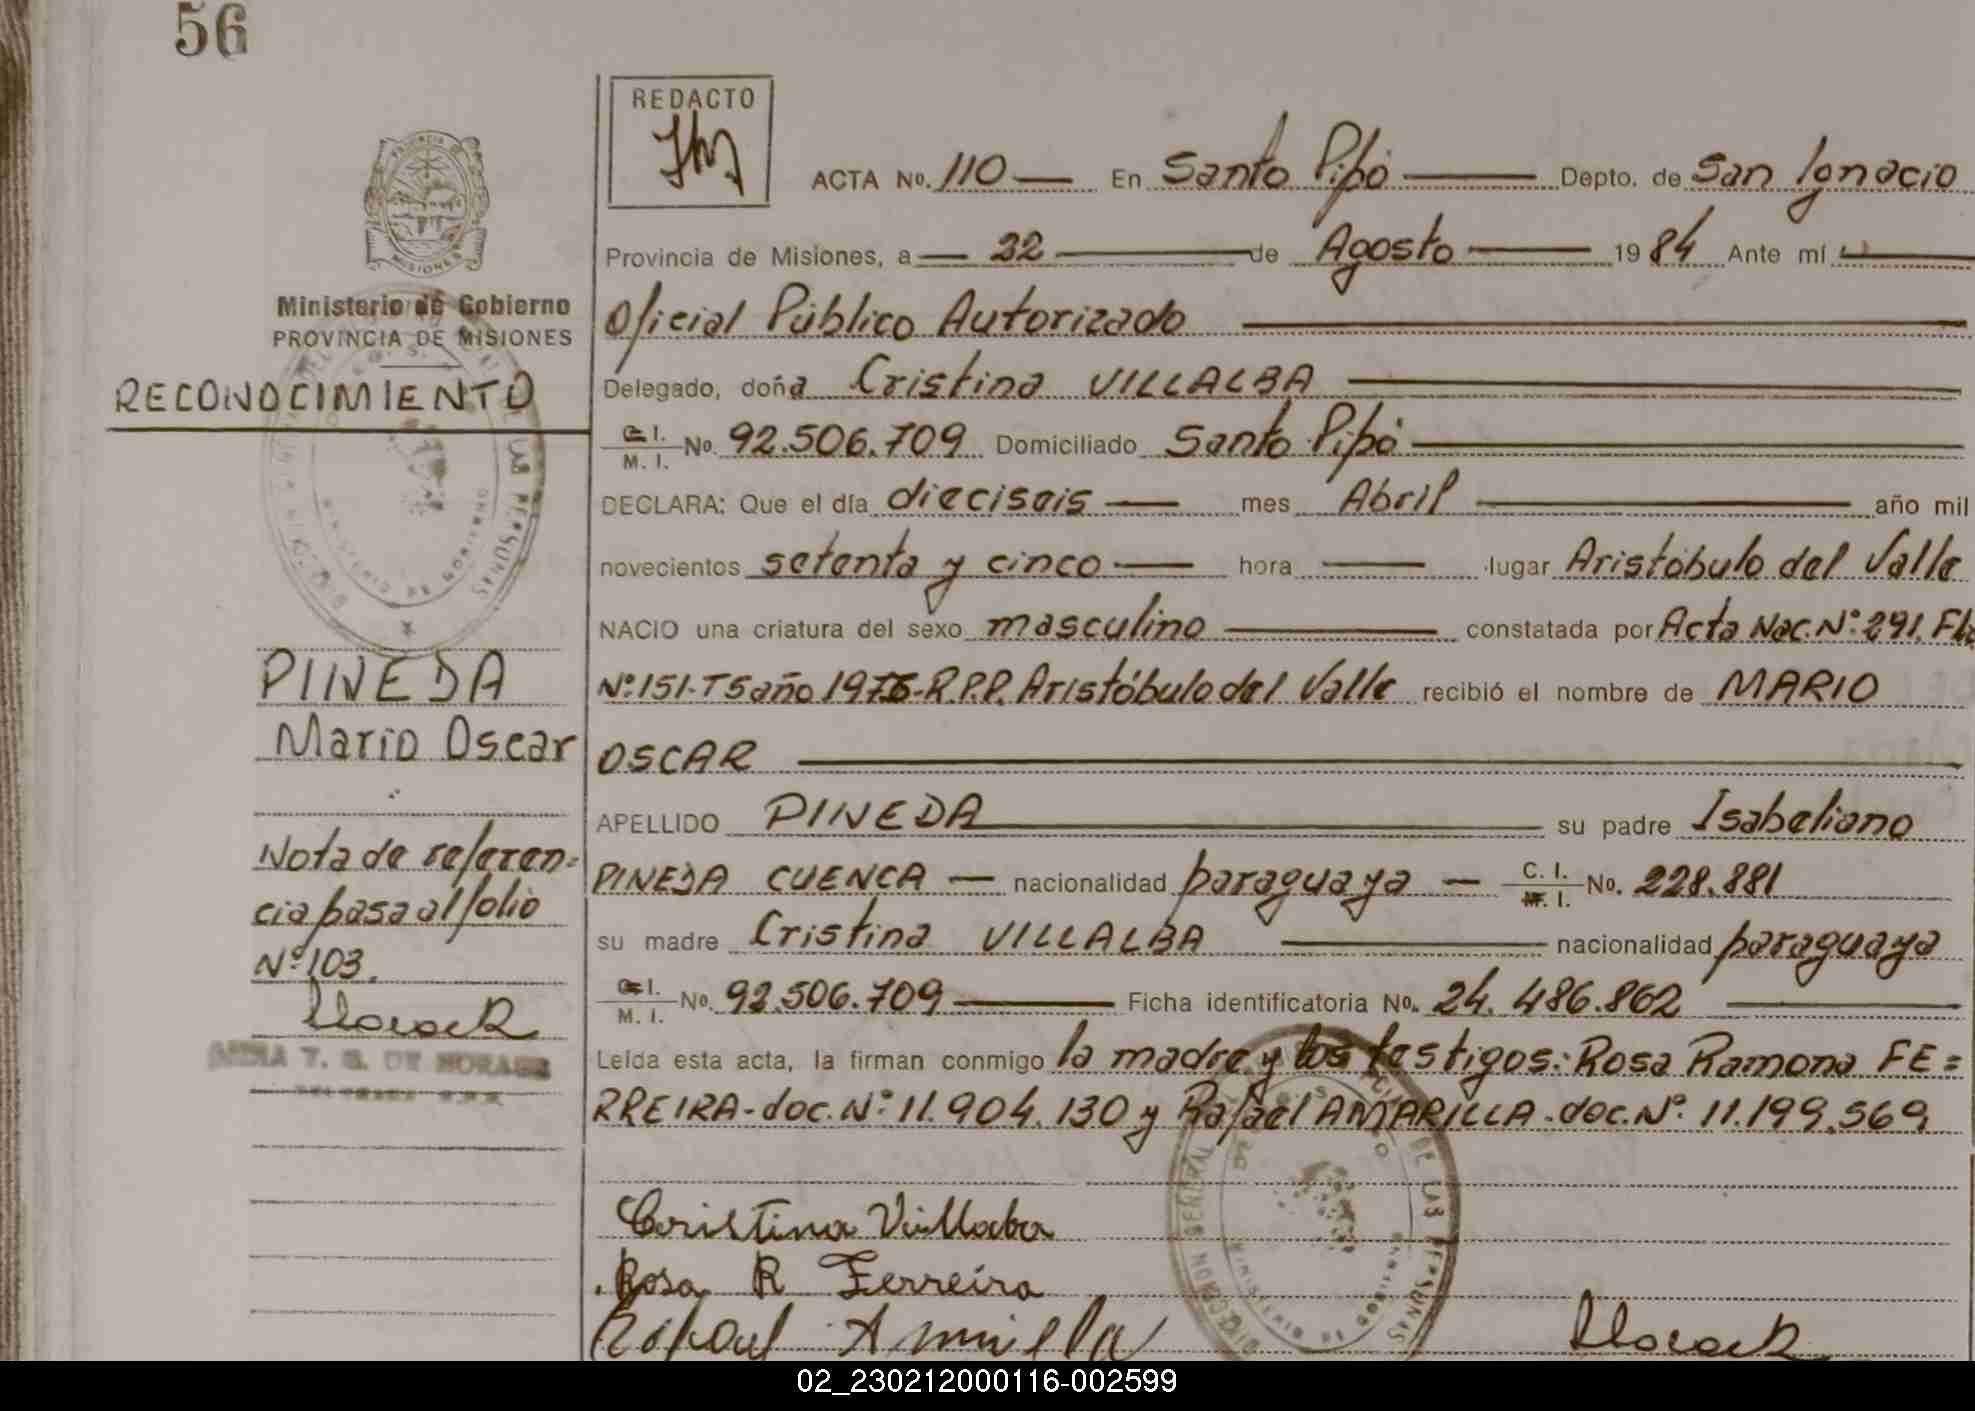 56
REDACTO
ACTA No. 110 En Santo Pipó Depto. de San Ignacio
Provincia de Misiones, a 22 de Agosto 1984 Ante mí
Oficial Público Autorizado
Delegado, doña Cristina VILLALBA
C. I. M. I. No. 92.506.709 Domiciliado Santo Pipó
DECLARA: Que el día dieciseis mes Abril año mil
novecientos setenta y cinco hora lugar Aristóbulo del Valle
NACIO una criatura del sexo masculino constatada por Acta Nac. Nº 291. Flo
Nº 151-T5 año 1975-R.P.P. Aristóbulo del Valle recibió el nombre de MARIO
OSCAR
APELLIDO PINEDA su padre Isabeliano
PINEDA CUENCA nacionalidad paraguaya C. I. M. I. No. 228.881
su madre Cristina VILLALBA nacionalidad paraguaya
C. I. M. I. No. 92.506.709 Ficha identificatoria No. 24.486.862
Leída esta acta, la firman conmigo la madre y los testigos: Rosa Ramona FE=
RREIRA-doc. Nº 11.904.130 y Rafael AMARILLA-doc. Nº 11.199.569
Cristina Villalba
Rosa R Ferreira
Rafael Amarilla
PROVINCIA DE
MISIONES
Ministerio de Gobierno
PROVINCIA DE MISIONES
RECONOCIMIENTO
PINEDA
Mario Oscar
Nota de referen=
cia pasa al folio
Nº 103.
T. S. DE MORAES
DIRECCION GENERAL DE LAS PERSONAS
MINISTERIO DE GOBIERNO
02_230212000116-002599